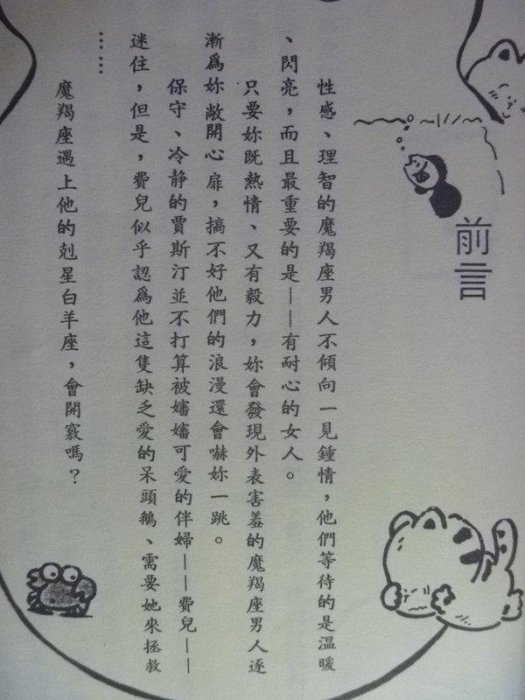 前言
性感、理智的魔羯座男人不傾向一見鍾情，他們等待的是溫暖
、閃亮，而且最重要的是——有耐心的女人。
只要妳既熱情、又有毅力，妳會發現外表害羞的魔羯座男人逐
漸為妳敞開心扉，搞不好他們的浪漫還會嚇妳一跳。
保守、冷靜的賈斯汀並不打算被嬸嬸可愛的伴婦——費兒——
迷住，但是，費兒似乎認為他這隻缺乏愛的呆頭鵝、需要她來拯救
……
魔羯座遇上他的剋星白羊座，會開竅嗎？